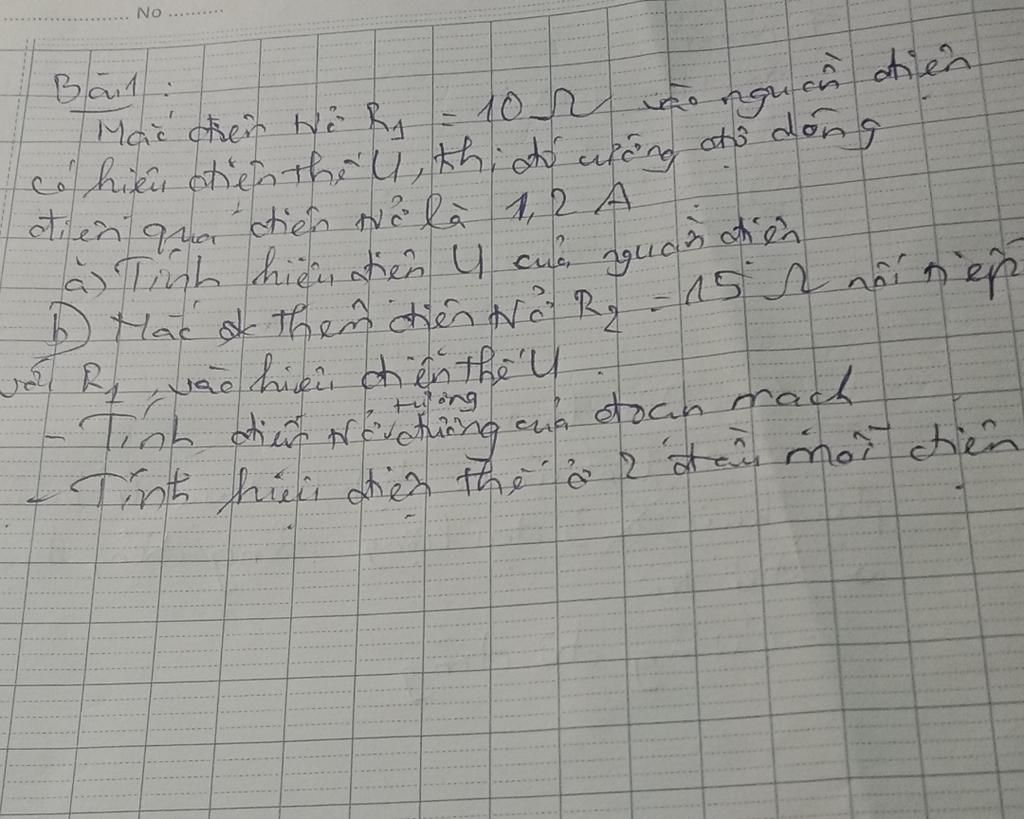 No
Bài 1 :
Mắc điện trở R₁ = 10 Ω vào nguồn điện
có hiệu điện thế U, thì đó cường độ dòng
điện qua điện trở là 1,2 A
a) Tính hiệu điện U của nguồn điện
b) Mắc thêm điện trở R₂ = 15 Ω nối tiếp
với R₁ vào hiệu điện thế U.
- Tính điện trở tương đương của đoạn mạch
- Tính hiệu điện thế ở 2 đầu mỗi điện